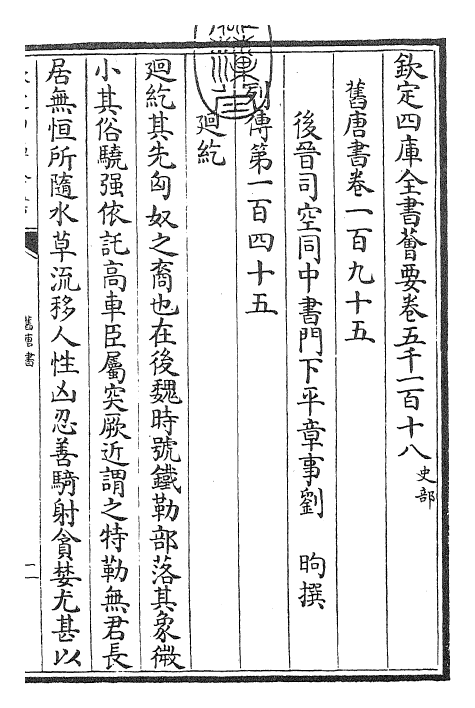 欽定四庫全書薈要卷五千一百十八 史部
舊唐書卷一百九十五
後晉司空同中書門下平章事劉 昫撰
列傳第一百四十五
廻紇
廻紇其先匈奴之裔也在後魏時號鐵勒部落其象微
小其俗驍强依託高車臣屬突厥近謂之特勒無君長
居無恒所隨水草流移人性凶忍善騎射貪婪尤甚以
舊唐書